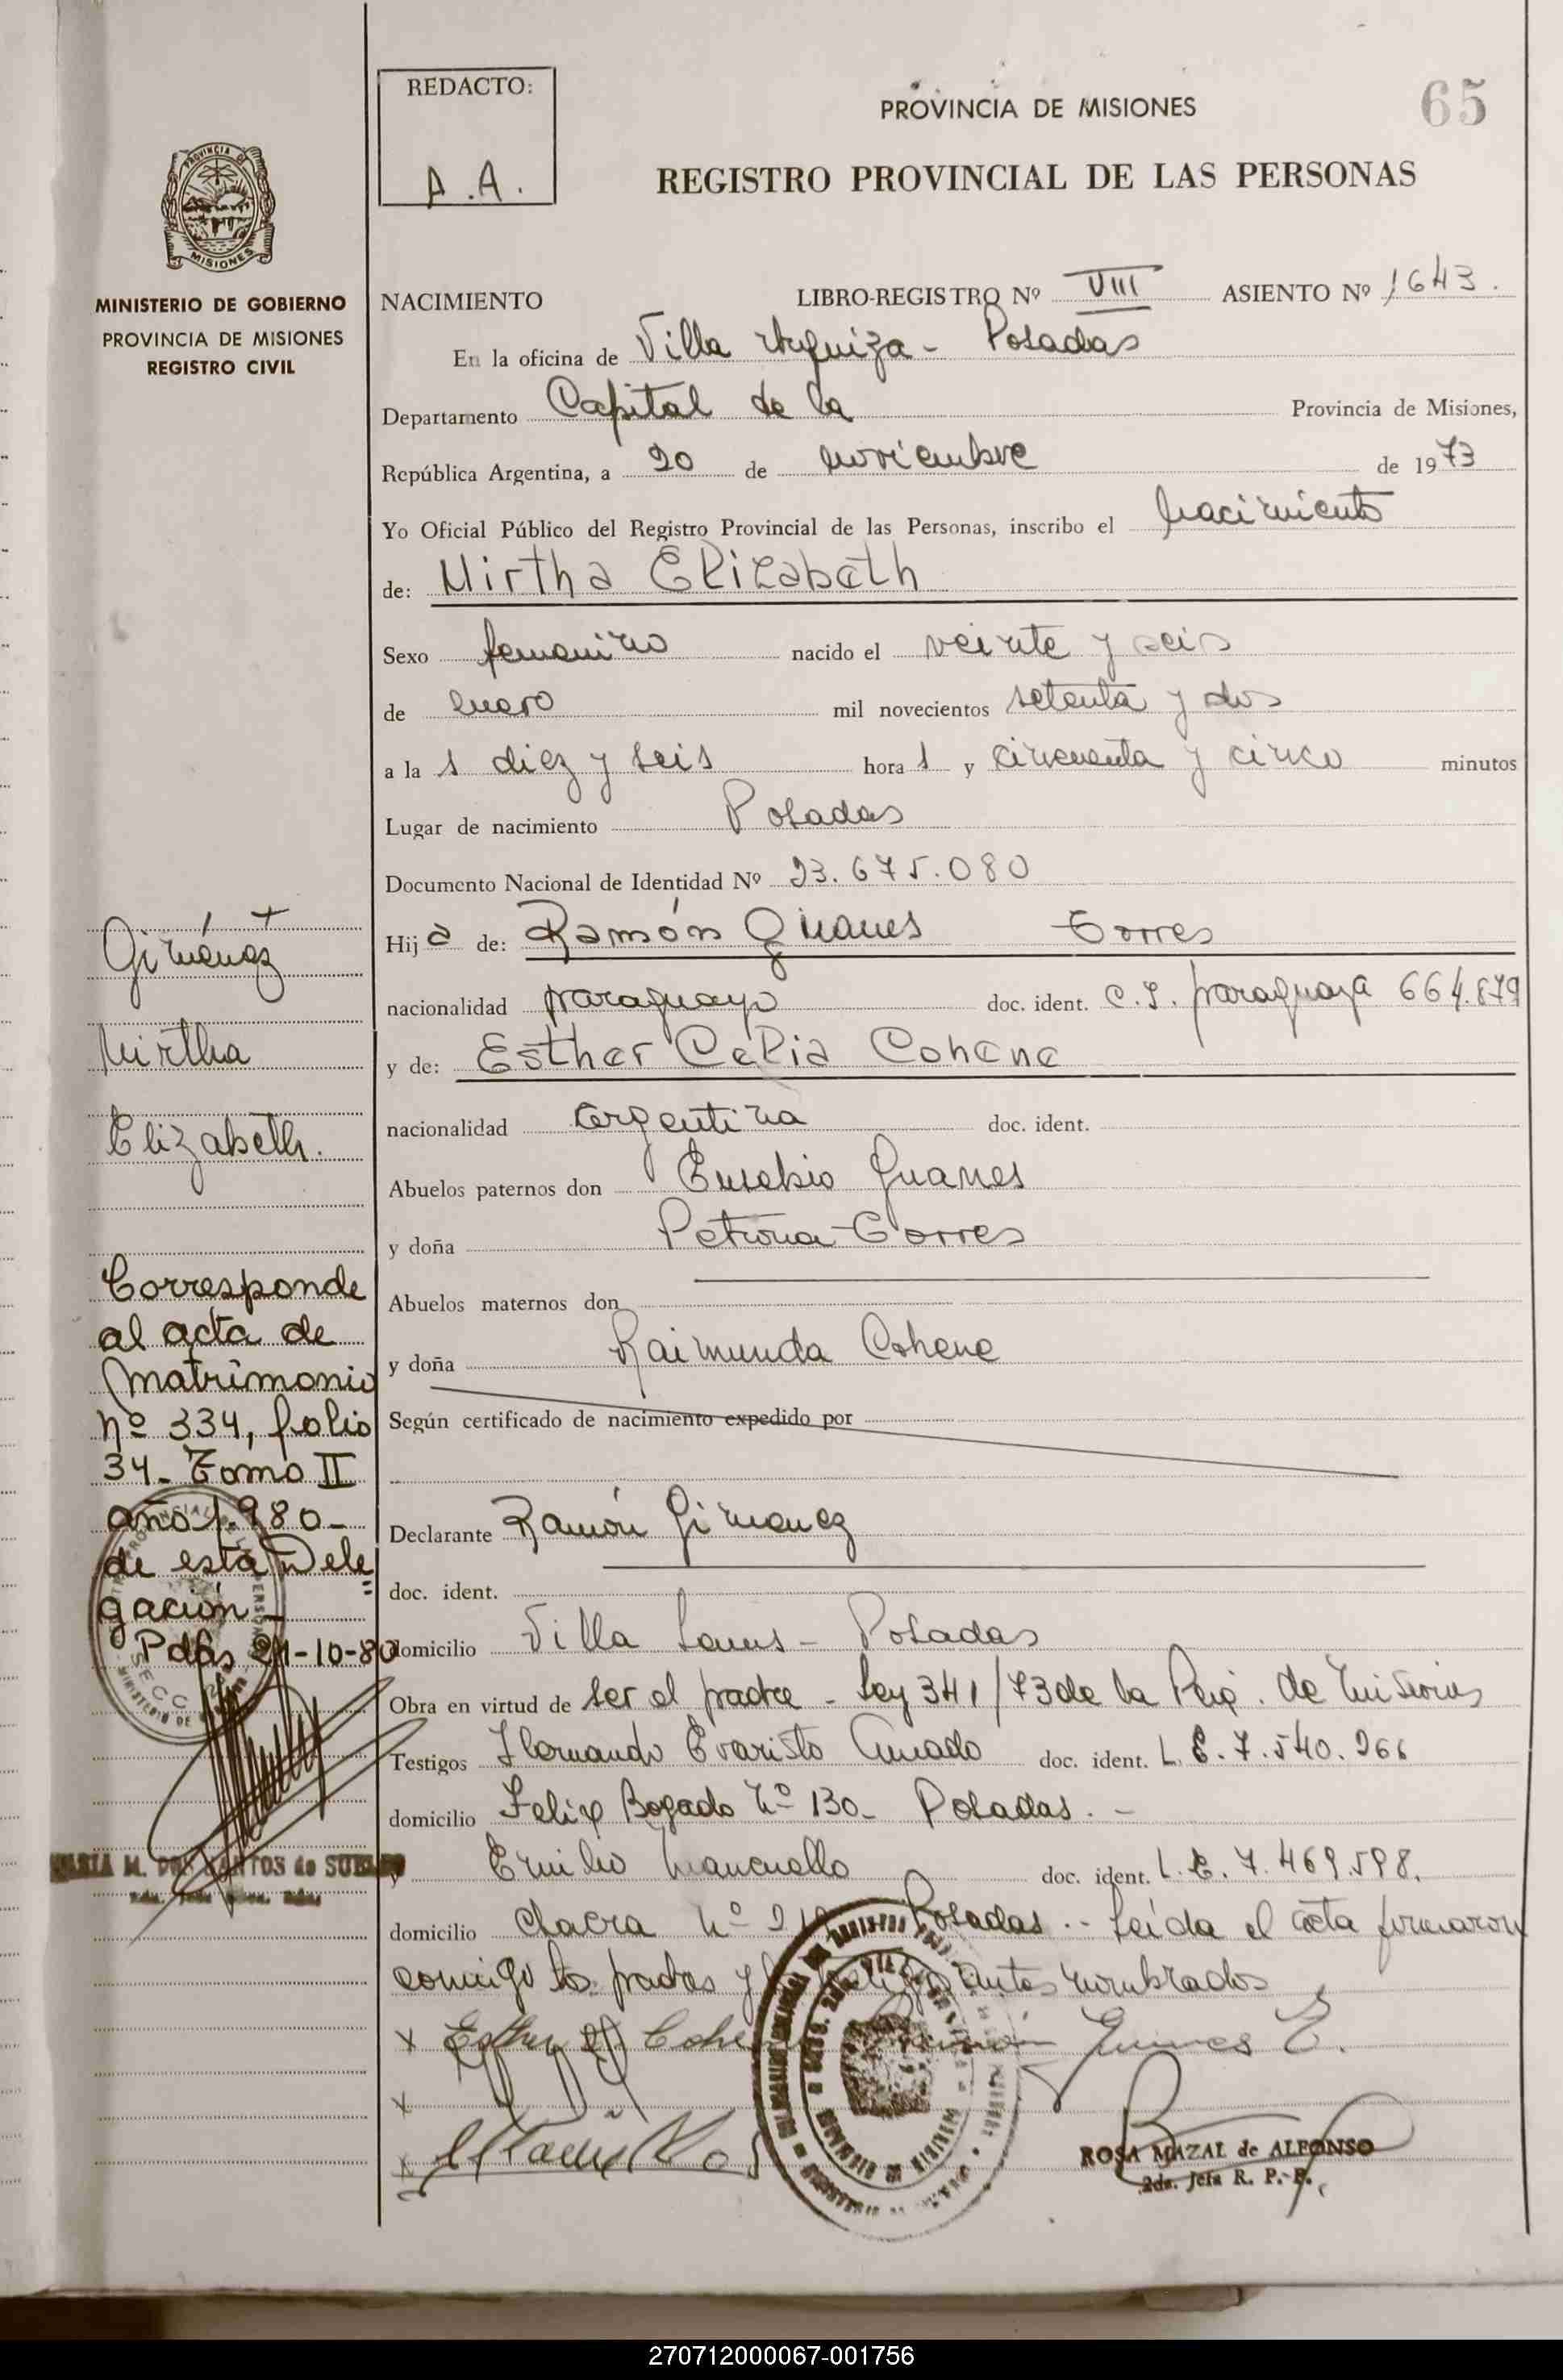 REDACTO:
A.A.
PROVINCIA DE MISIONES
65
REGISTRO PROVINCIAL DE LAS PERSONAS
PROVINCIA DE
MISIONES
MINISTERIO DE GOBIERNO
PROVINCIA DE MISIONES
REGISTRO CIVIL
NACIMIENTO LIBRO-REGISTRO Nº VIII ASIENTO Nº 1643.
En la oficina de Villa Urquiza - Posadas
Departamento Capital de la Provincia de Misiones,
República Argentina, a 20 de noviembre de 1973
Yo Oficial Público del Registro Provincial de las Personas, inscribo el nacimiento
de: Mirtha Elizabeth
Sexo femenino nacido el veinte y seis
de enero mil novecientos setenta y dos
a la s diez y seis hora s y cincuenta y cinco minutos
Lugar de nacimiento Posadas
Documento Nacional de Identidad Nº 23.675.080
Hij a de: Ramón Torres
nacionalidad paraguayo doc. ident. C.I. paraguaya 664.879
y de: Esther Celia Cohene
nacionalidad argentina doc. ident.
Abuelos paternos don Eusebio
y doña Petrona Torres
Abuelos maternos don
y doña Raimunda Cohene
Según certificado de nacimiento expedido por
Declarante Ramón Gimenez
doc. ident.
domicilio Villa - Posadas
Obra en virtud de ser el padre - Ley 341/73 de la de Misiones
Testigos Hernando Evaristo Amado doc. ident. L.E. 7.540.266
domicilio Felix Bogado Nº 130 - Posadas. -
y Emilio Mancuello doc. ident. L.E. 7.469.598.
domicilio Chacra Nº Posadas. - Leída el acta firmaron
conmigo los padres y antes nombrados
x Esther Cohene Ramón E.
x
x
ROSA MAZAL de ALFONSO
2da. Jefa R. P. P.
Giménez
Mirtha
Elizabeth.
Corresponde
al acta de
Matrimonio
nº 334, folio
34- Tomo II
año 1.980-
de esta Dele
gación-
Pdas, 24-10-80
MARIA M. DOS SANTOS de
270712000067-001756